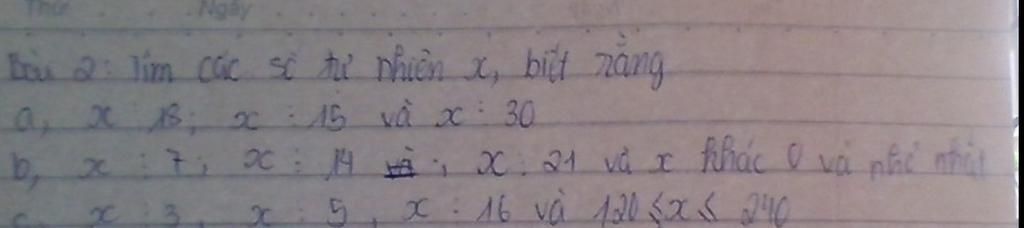 Thứ Ngày
Bài 2: Tìm các số tự nhiên x, biết rằng
a, x ⋮ 18; x ⋮ 15 và x ⋮ 30
b, x ⋮ 7; x ⋮ 14 ; x ⋮ 21 và x khác 0 và nhỏ nhất
c, x ⋮ 3, x ⋮ 5, x ⋮ 16 và 120 ≤ x ≤ 240